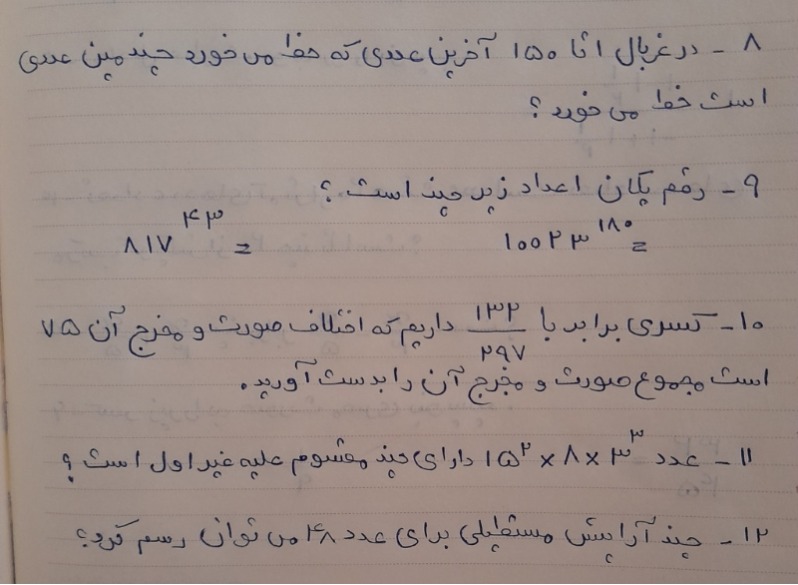 ۸ - در غربال ۱ تا ۱۵۰ آخرین عددی که خط می خورد چندمین عددی
است خط می خورد؟
۹ - رقم یکان اعداد زیر چند است؟
۸۱۷^۴۳ = ۱۰۰۲۳^۱۸۰ =
۱۰ - کسری برابر با ۱۳۲/۲۹۷ داریم که اختلاف صورت و مخرج آن ۷۵
است مجموع صورت و مخرج آن را بدست آورید.
۱۱ - عدد ۱۵^۲ × ۸ × ۳^۳ دارای چند مقسوم علیه غیر اول است؟
۱۲ - چند آرایش مستطیلی برای عدد ۴۸ می توان رسم کرد؟